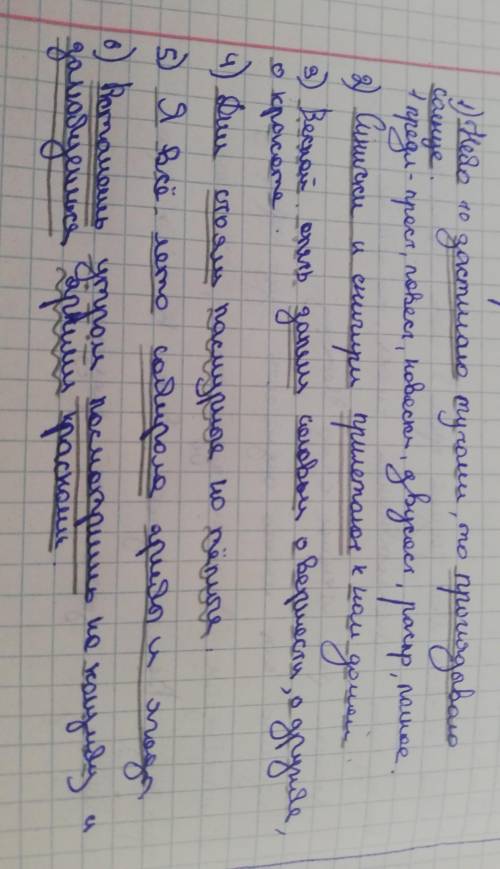 1) Небо то застилало тучами, то проглядывало
солнце.
1 предл - прост, повест, невоскл, двусост, распр, полное.
2) Синички и снегири прилетают к нам зимой.
3) Весной опять запели соловьи о верности, о дружбе,
о красоте.
4) Дни стояли пасмурные но тёплые.
5) Я всё лето собирала грибы и ягоды
6) утром посмотришь на и
залюбуешься яркими красками.